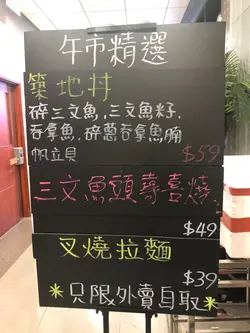 午市精選
築地丼
碎三文魚,三文魚籽,
吞拿魚,碎蔥吞拿魚腩
帆立貝
$59
三文魚頭壽喜燒,
$49
叉燒拉麵
$39
*只限外賣自取*